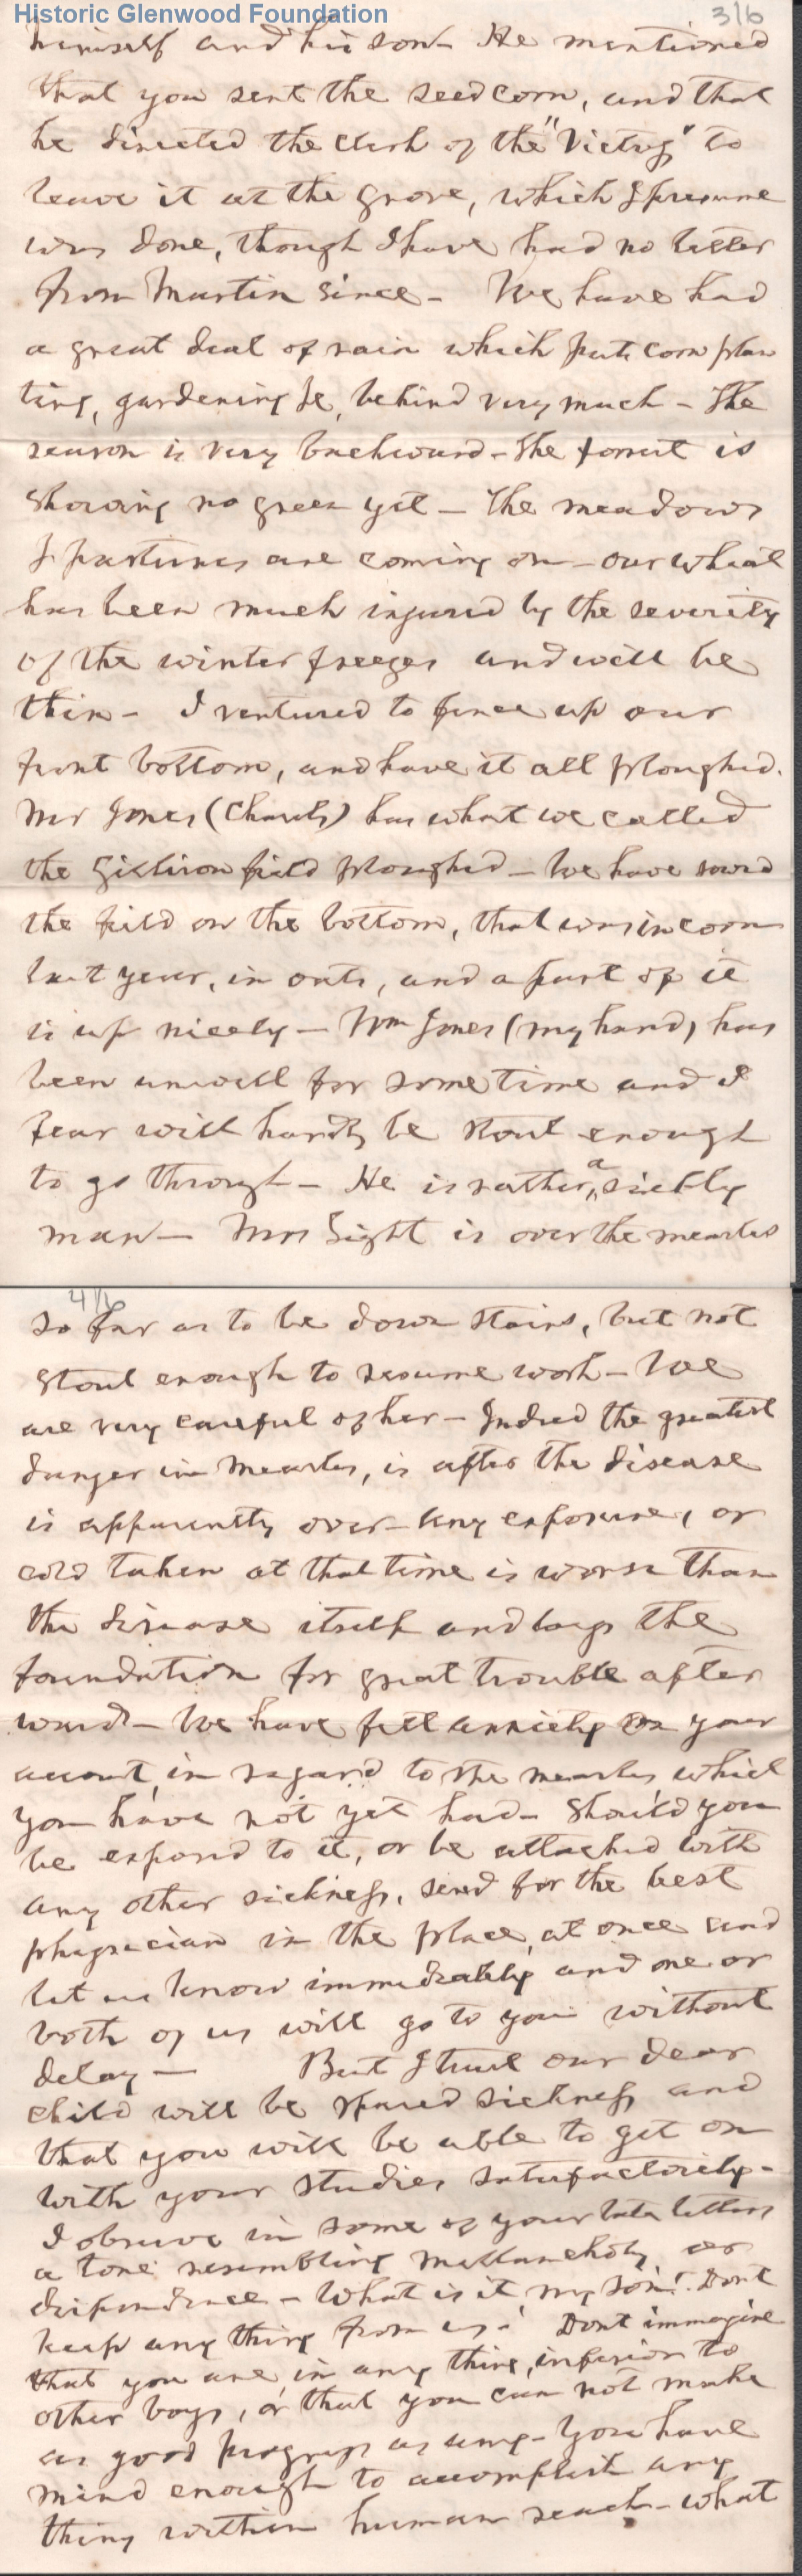 Historic Glenwood Foundation
3/6
himself and his son - He mentioned
that you sent the seed corn, and that
he directed the clerk of the "Victress" to
leave it at the grove, which I presume
was done, though I have had no letter
from Martin since - We have had
a great deal of rain which puts corn plan
ting, gardening &c, behind very much - The
season is very backward - The forest is
showing no green yet - The meadows
& pastures are coming on - our wheat
has been much injured by the severity
of the winter freezes and will be
thin - I ventured to fence up our
front bottom, and have it all ploughed.
Mr Jones (Charls) has what we called
the field ploughed - We have sowed
the field on the bottom, that was in corn
last year, in oats, and a part of it
is up nicely - Wm Jones (my hand) has
been unwell for some time and I
fear will hardly be stout enough
to go through - He is rather a sickly
man - Mrs Light is over the measles
4/6
so far as to be down stairs, but not
stout enough to resume work - We
are very careful of her - Indeed the greatest
danger in measles, is after the disease
is apparently over - any exposure, or
cold taken at that time is worse than
the disease itself and lays the
foundation for great trouble after
ward - We have felt anxiety on your
account in regard to the measles which
you have not yet had - Should you
be exposed to it, or be attacked with
any other sickness, send for the best
physician in the place, at once and
let us know immediately and one or
both of us will go to you without
delay - But I trust our dear
child will be spared sickness and
that you will be able to get on
with your studies satisfactorily -
I observe in some of your late letters
a tone resembling mellancholy or
dispondence - What is it, my son! Dont
keep any thing from us! Dont immagine
that you are, in any thing, inferior to
other boys, or that you can not make
as good progress as any - You have
mind enough to accomplish any
thing within human reach - what